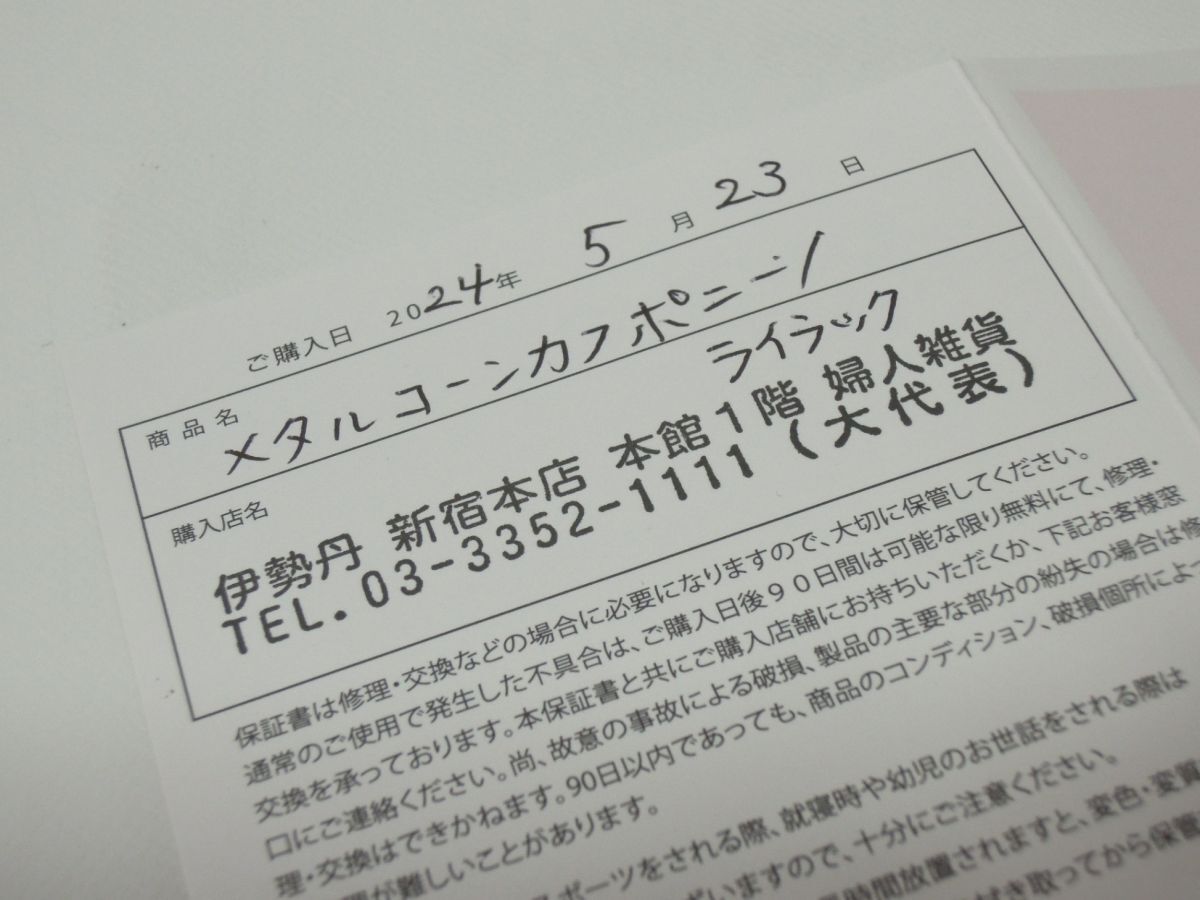 ご購入日 2024年 5月 23日
商品名 メタルコーンカフポニー/
ライラック
購入店名
伊勢丹 新宿本店 本館1階 婦人雑貨
TEL.03-3352-1111(大代表)
保証書は修理・交換などの場合に必要になりますので、大切に保管してください。
通常のご使用で発生した不具合は、ご購入日後90日間は可能な限り無料にて、修理・
交換を承っております。本保証書と共にご購入店舗にお持ちいただくか、下記お客様窓
口にご連絡ください。尚、故意の事故による破損、製品の主要な部分の紛失の場合は修
理・交換はできかねます。90日以内であっても、商品のコンディション、破損個所によっ
が難しいことがあります。
スポーツをされる際、就寝時や幼児のお世話をされる際は
ざいますので、十分にご注意ください。
時間放置されますと、変色・変質
拭き取ってから保管